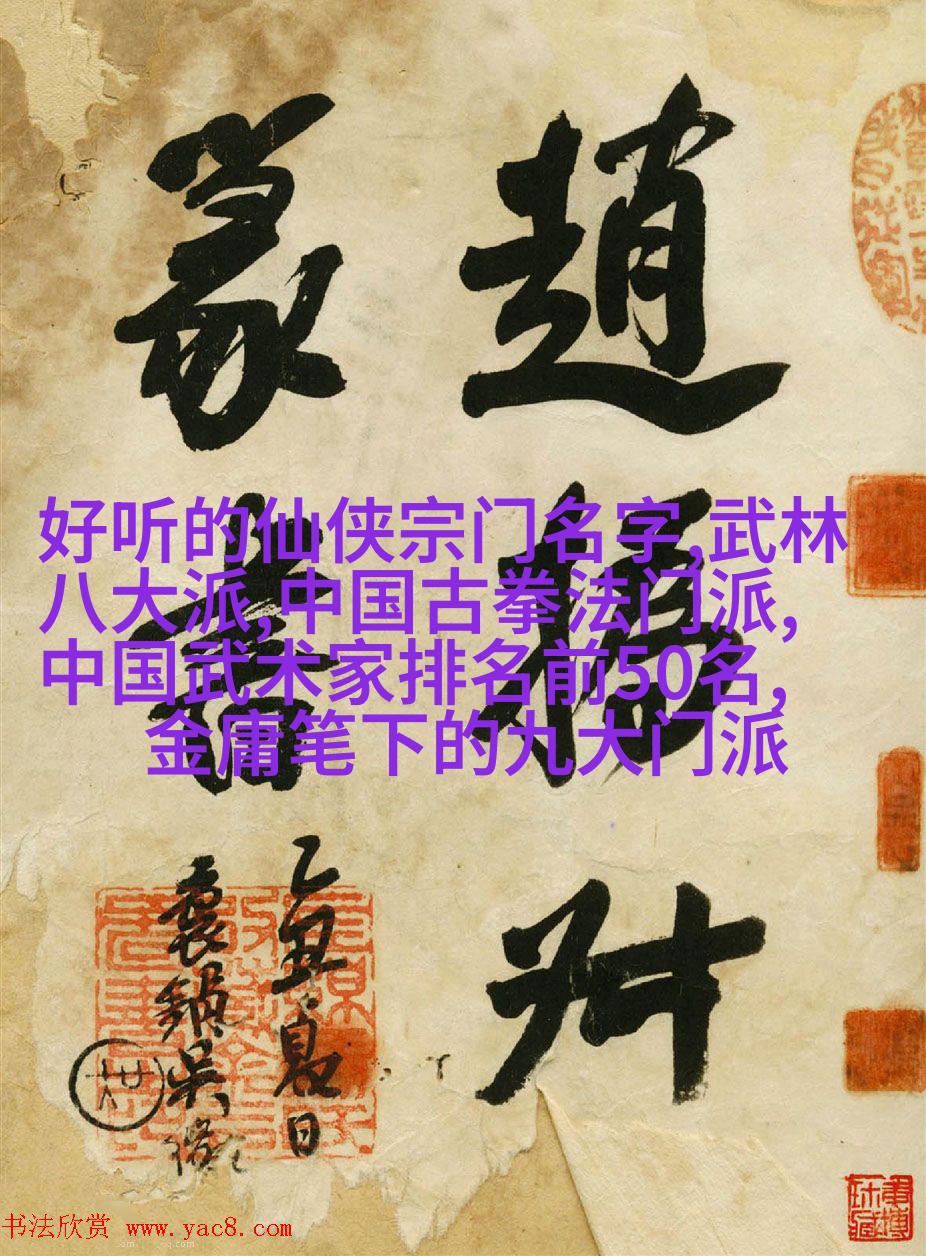 好听的仙侠宗门名字,武林
八大派,中国古拳法门派,
中国武术家排名前50名,
金庸笔下的九大门派
趙撝叔
篆書
夏日
书法欣赏 www.yac8.com